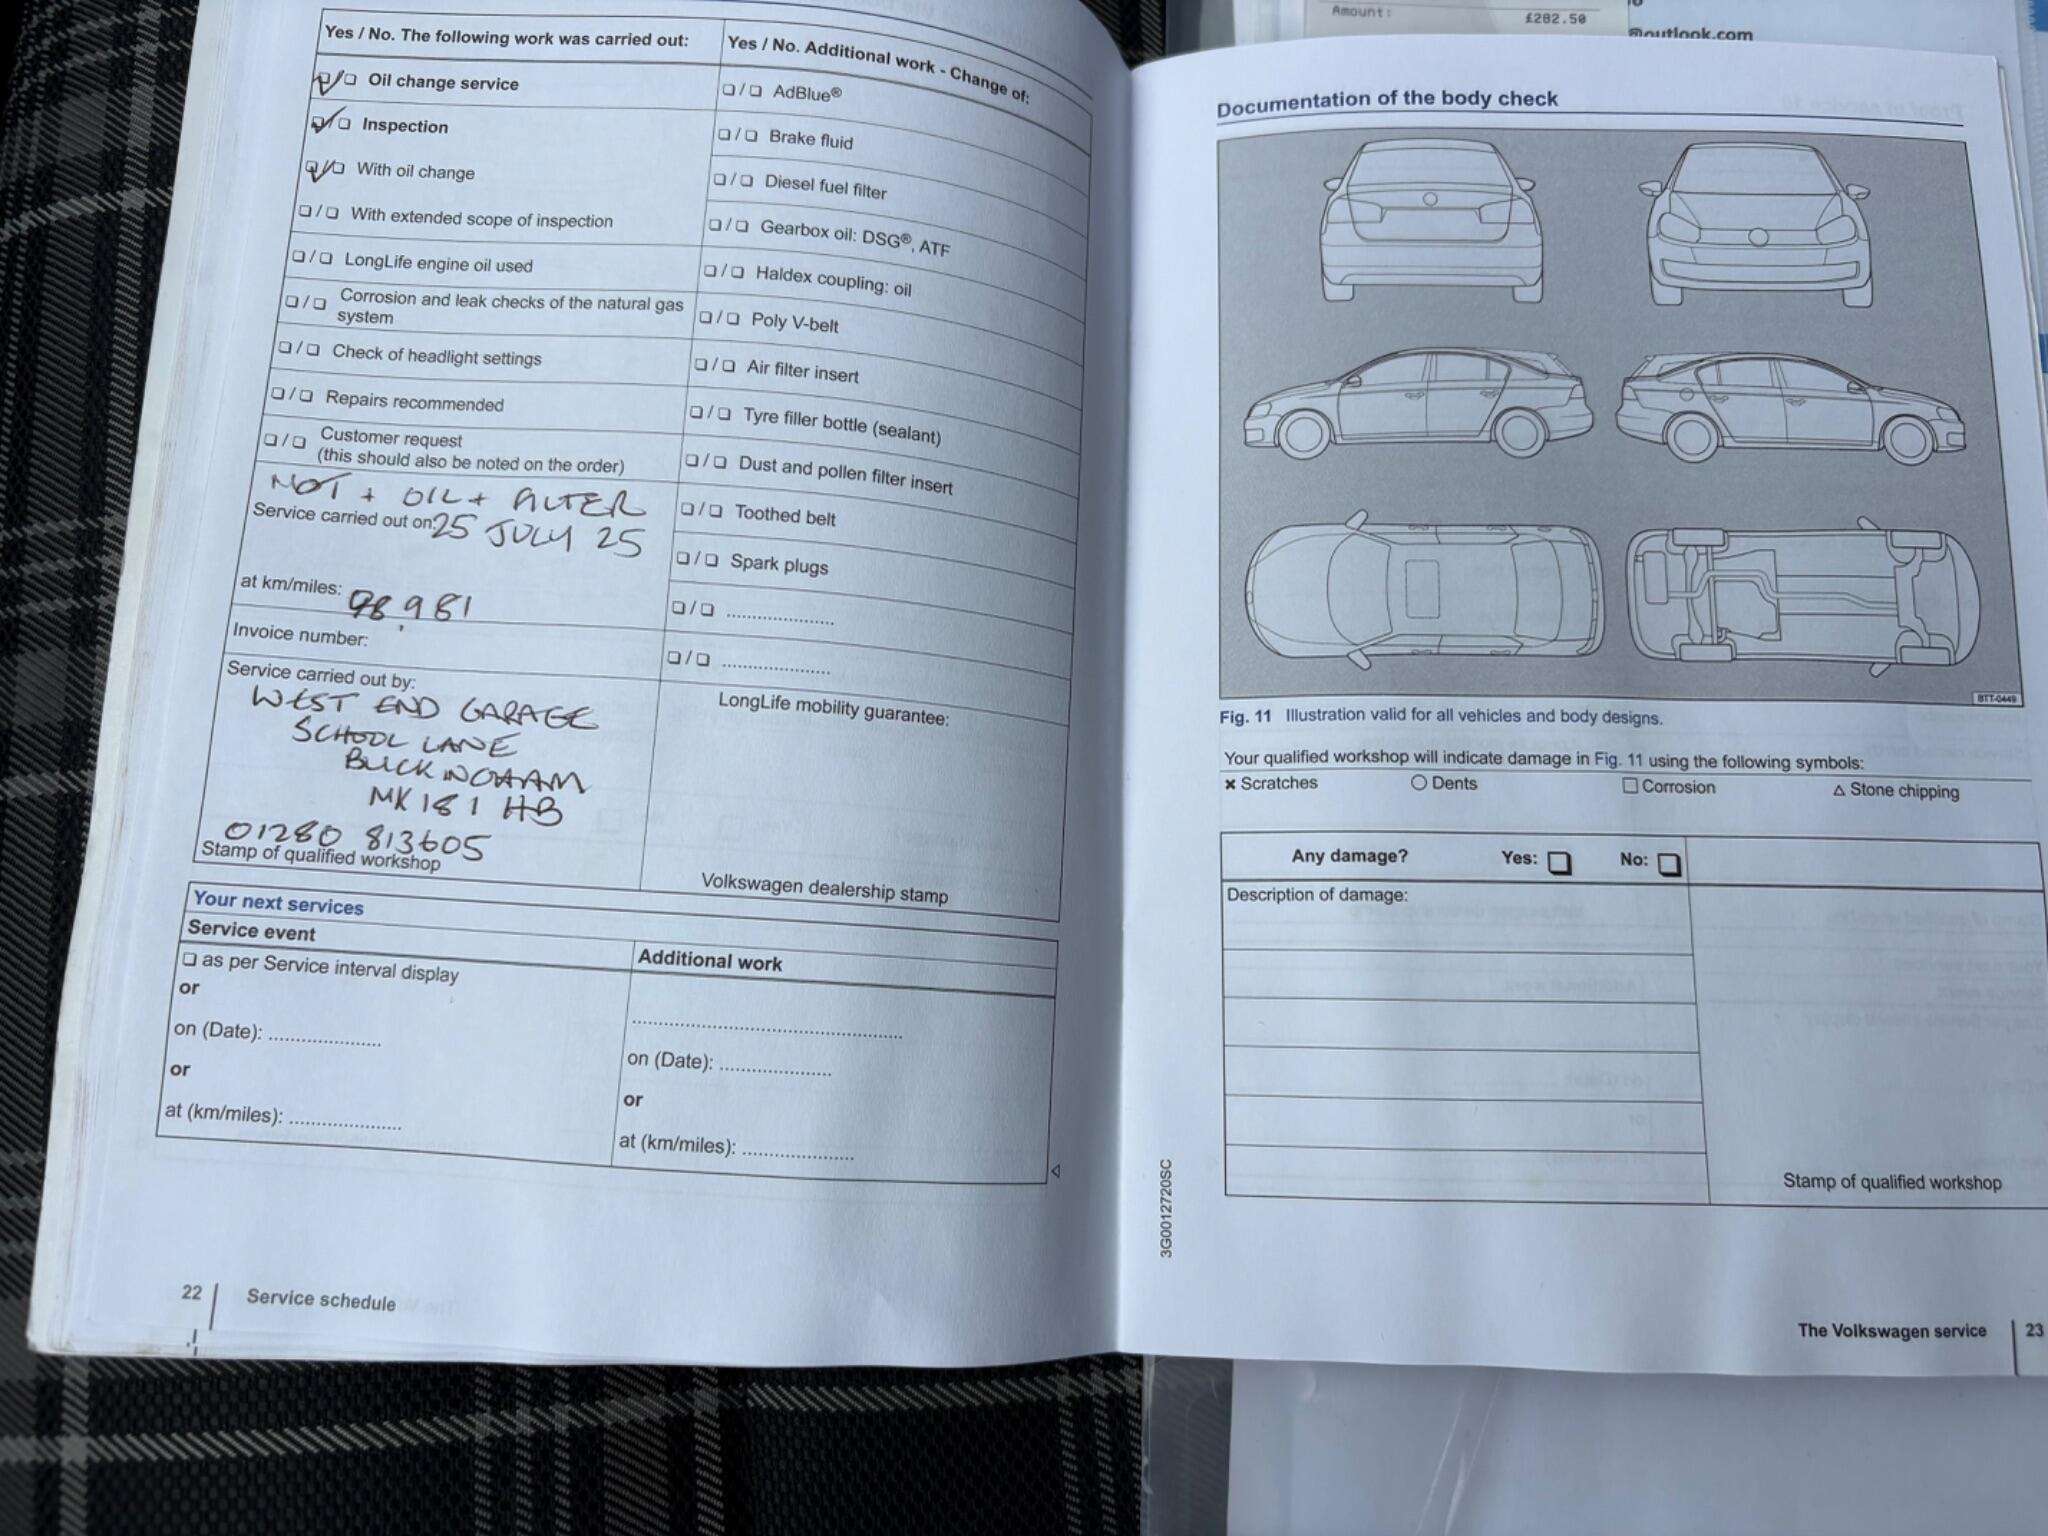 Amount: £282.50
@outlook.com
Yes / No. The following work was carried out:
Oil change service
Inspection
With oil change
With extended scope of inspection
LongLife engine oil used
Corrosion and leak checks of the natural gas
system
Check of headlight settings
Repairs recommended
Customer request
(this should also be noted on the order)
MOT + OIL + FILTER
Service carried out on: 25 JULY 25
at km/miles: 98,981
Invoice number:
Service carried out by:
WEST END GARAGE
SCHOOL LANE
BUCKINGHAM
MK18 1HB
01280 813605
Stamp of qualified workshop
Yes / No. Additional work - Change of:
AdBlue®
Brake fluid
Diesel fuel filter
Gearbox oil: DSG®, ATF
Haldex coupling: oil
Poly V-belt
Air filter insert
Tyre filler bottle (sealant)
Dust and pollen filter insert
Toothed belt
Spark plugs
....................
....................
LongLife mobility guarantee:
Volkswagen dealership stamp
Your next services
Service event
as per Service interval display
or
on (Date): ....................
or
at (km/miles): ....................
Additional work
..................................................
on (Date): ....................
or
at (km/miles): ....................
22 Service schedule
Documentation of the body check
BTT-0449
Fig. 11 Illustration valid for all vehicles and body designs.
Your qualified workshop will indicate damage in Fig. 11 using the following symbols:
× Scratches ○ Dents □ Corrosion △ Stone chipping
Any damage? Yes: No:
Description of damage:
Stamp of qualified workshop
3G0012720SC
The Volkswagen service 23